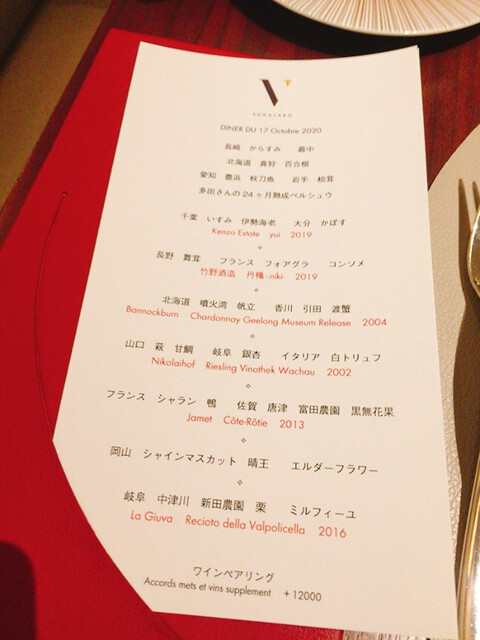 SUGALABO
DINER DU 17 Octobre 2020
長崎 からすみ 最中
北海道 真狩 百合根
愛知 豊浜 秋刀魚 岩手 松茸
多田さんの24ヶ月熟成ペルシュウ
千葉 いすみ 伊勢海老 大分 かぼす
Kenzo Estate yui 2019
長野 舞茸 フランス フォアグラ コンソメ
竹野酒造 丹穐 -niki- 2019
北海道 噴火湾 帆立 香川 引田 渡蟹
Bannockburn Chardonnay Geelong Museum Release 2004
山口 萩 甘鯛 岐阜 銀杏 イタリア 白トリュフ
Nikolaihof Riesling Vinothek Wachau 2002
フランス シャラン 鴨 佐賀 唐津 富田農園 黒無花果
Jamet Côte-Rôtie 2013
岡山 シャインマスカット 晴王 エルダーフラワー
岐阜 中津川 新田農園 栗 ミルフィーユ
La Giuva Recioto della Valpolicella 2016
ワインペアリング
Accords mets et vins supplement +12000